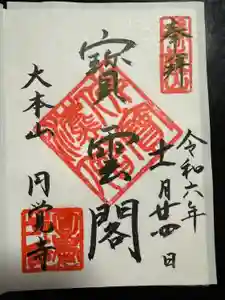 奉拝
令和六年
十一月廿四日
寶雲閣
大本山
円覚寺